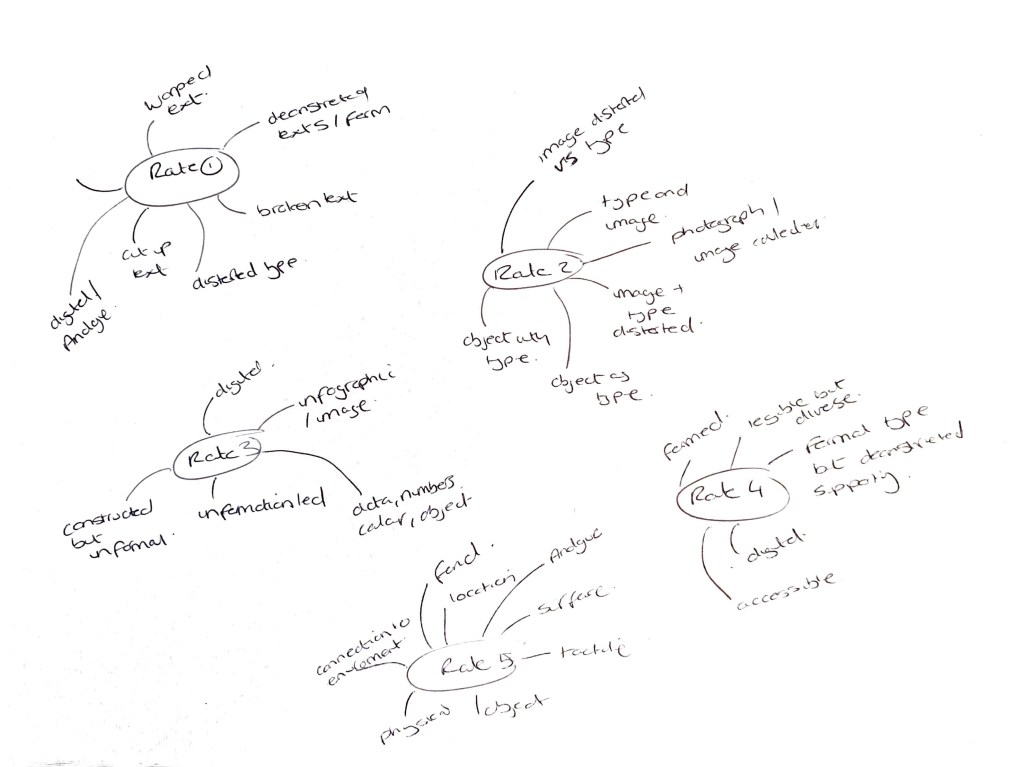 warped
text.
deconstructed
texts / form
Route 1
broken text
cut up
text
distorted type
digital /
Analogue.
image distorted
vs type
type and
image.
photograph /
image
Route 2
image +
type
distorted.
object with
type.
object as
type.
digital.
infographic
/ image.
Route 3
constructed
but
informal.
information led
data, numbers
colour, object
formed.
legible but
diverse.
formal type
but deconstructed
supporting.
Route 4
digital.
accessible
found.
location
Analogue
surface.
connection to
environment.
Route 5
tactile
physical / object